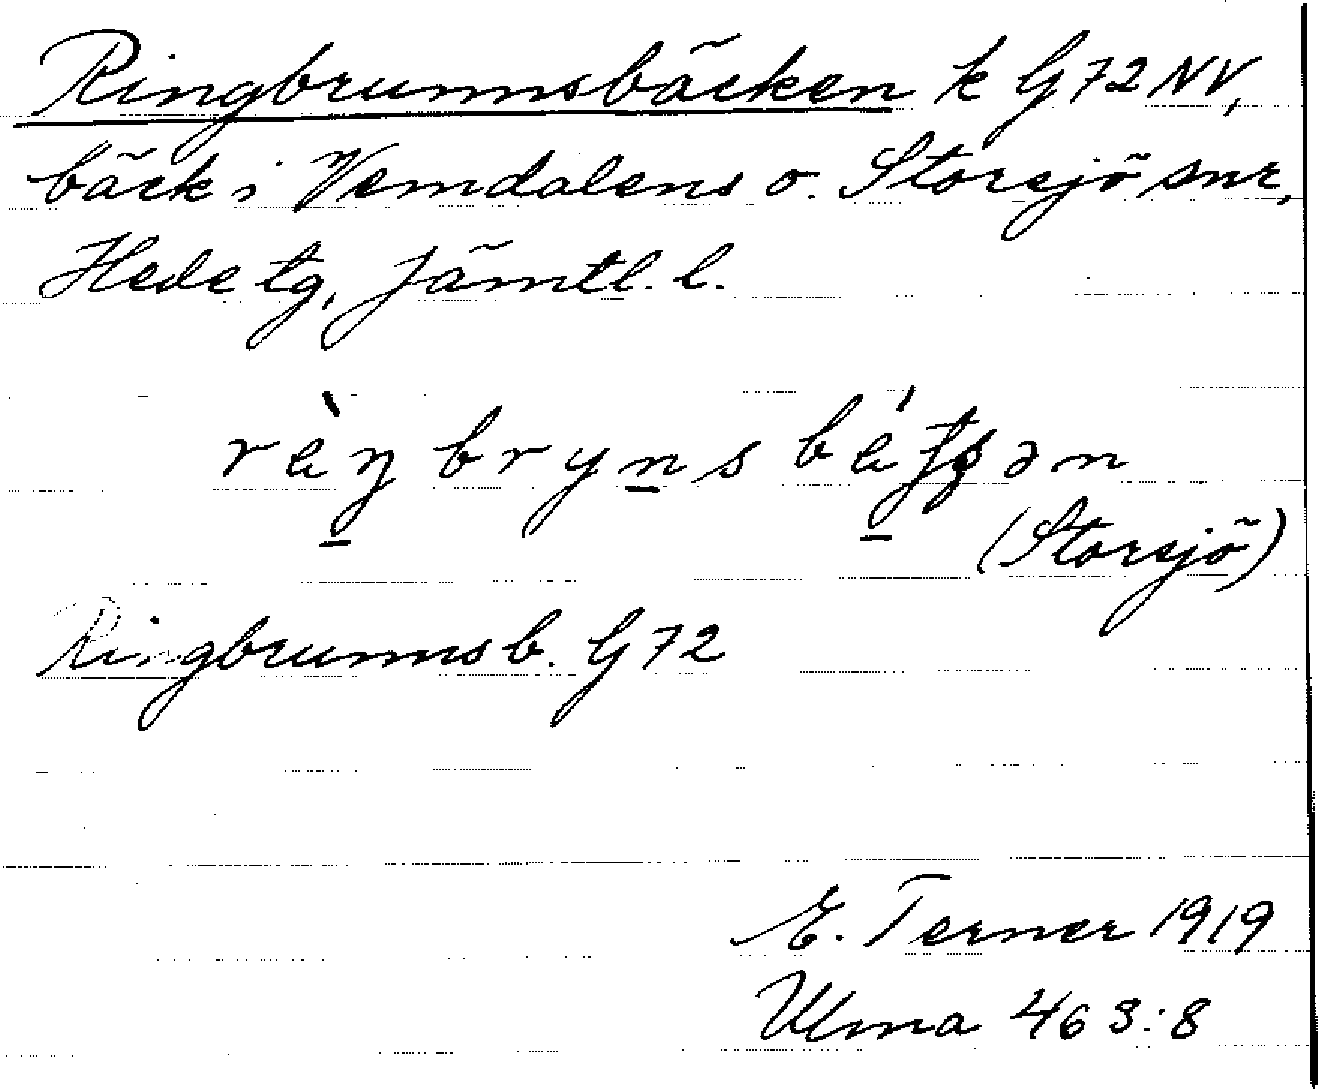 Ringbrunnsbäcken k G72NV,
bäck i Vemdalens o. Storsjö snr,
Hede tg, Jämtl. l.
(Storsjö)
Ringbrunnsb. G72
E. Terner 1919
Ulma 463:8